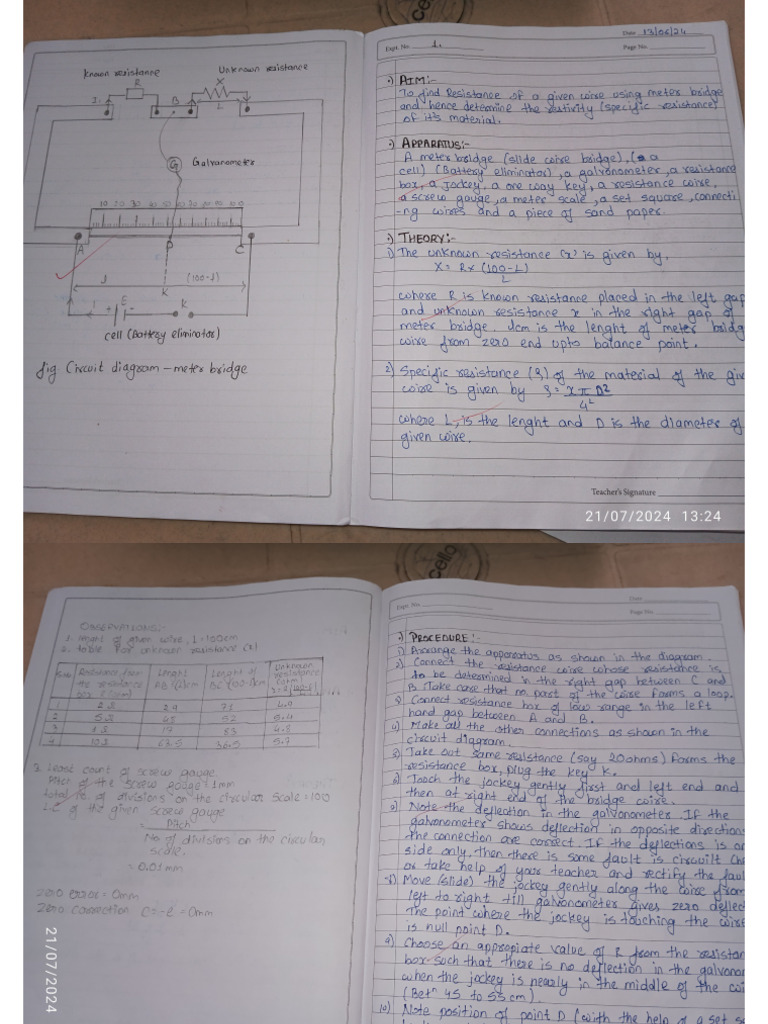 known resistance
Unknown resistance
R
X
J1
B
L
G
Galvanometer
10 20 30 40 50 60
A
P
C
l
(100-l)
K
E
K
cell (Battery eliminator)
fig. Circuit diagram - meter bridge
Date 13/06/24
Expt. No. 1.
Page No.
AIM:-
To find Resistance of a given wire using meter bridge
and hence determine the restivity (specific resistance)
of it's material.
APPARATUS:-
A meter bridge (slide wire bridge), (a
cell) (Battery eliminator), a galvanometer, a resistance
box, a Jockey, a one way key, a resistance wire,
a screw gauge, a meter scale, a set square, connecti
-ng wires and a piece of sand paper.
THEORY:-
1) The unknown resistance (x) is given by,
X = R x (100-L)
L
where R is known resistance placed in the left gap
and unknown resistance x in the right gap of
meter bridge. lcm is the lenght of meter bridg
wire from zero end upto balance point.
2) Specific resistance (ρ) of the material of the giv
wire is given by ρ = xπD²
4L
where L, is the lenght and D is the diameter of
given wire.
Teacher's Signature
21/07/2024 13:24
cello
OBSERVATIONS:-
1. lenght of given wire, L = 100cm
2. table for unknown resistance (x)
Resistance from the resistance box R (ohm)
Lenght AB = l cm
Lenght of BC (100-l)cm
Unknown resistance
1 2 29 71 4.9
2 5 48 52 5.4
3 1 19 83
4 10 63.5 36.5 5.7
3. Least count of screw gauge.
Pitch of the screw gauge = 1mm
total no. of divisions on the circular scale = 100
LC of the given screw gauge
= Pitch
No of divisions on the circular
scale.
= 0.01 mm
zero error = 0mm
zero correction C = -e = 0mm
21/07/2024
Date
Expt. No.
Page No.
PROCEDURE:-
1) Arrange the apparatus as shown in the diagram.
2) Connect the resistance wire whose resistance is
to be determined in the right gap between C and
B. Take care that no part of the wire forms a loop.
3) Connect resistance box of low range in the left
hand gap between A and B.
4) Make all the other connections as shown in the
circuit diagram.
5) Take out some resistance (say 20ohms) forms the
resistance box, plug the key K.
6) Touch the jockey gently first and left end and
then at right end of the bridge wire.
7) Note the deflection in the galvonometer. If the
galvanometer shows deflection in opposite direction
the connection are correct. If the deflections is on
side only, then there is some fault is circuilt Che
or take help of your teacher and rectify the faul
8) Move (slide) the jockey gently along the wire from
left to right till galvonometer gives zero deflec
The point where the jockey is touching the wire
is null point D.
9) Choose an appropiate value of R from the resistan
box such that there is no deflection in the galvono
when the jockey is nearly in the middle of the wi
(Betn 45 to 55 cm).
10) Note position of point D (with the help of a set s